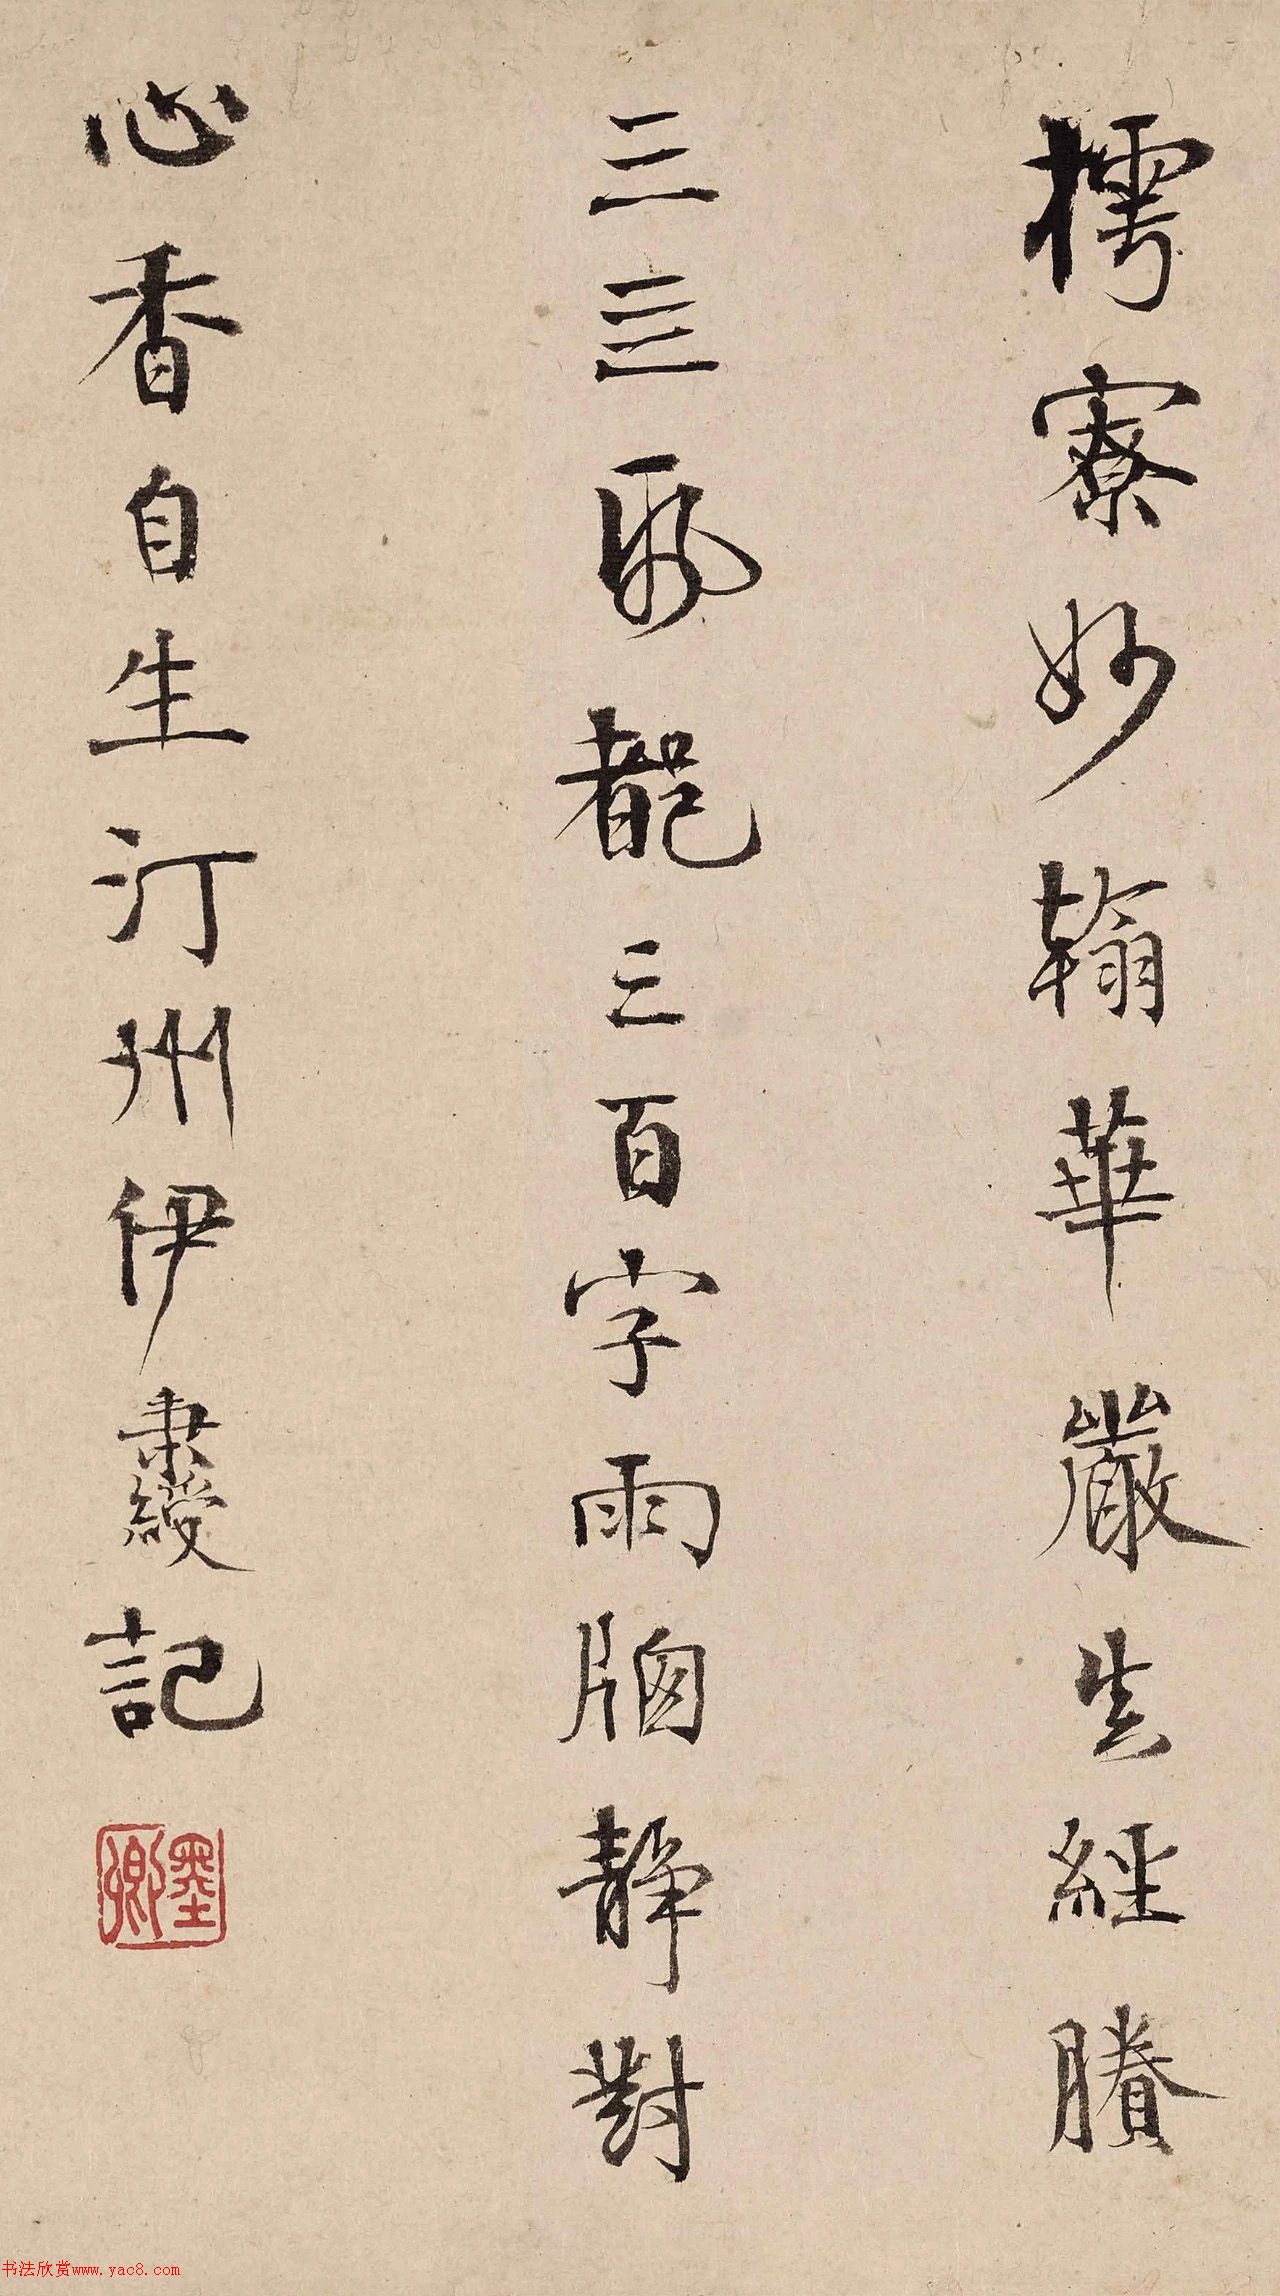 樗寮妙翰華嚴經賸
二三都三百字雨牕靜對
心香自生汀州伊秉綬記
墨卿
书法欣赏www.yac8.com